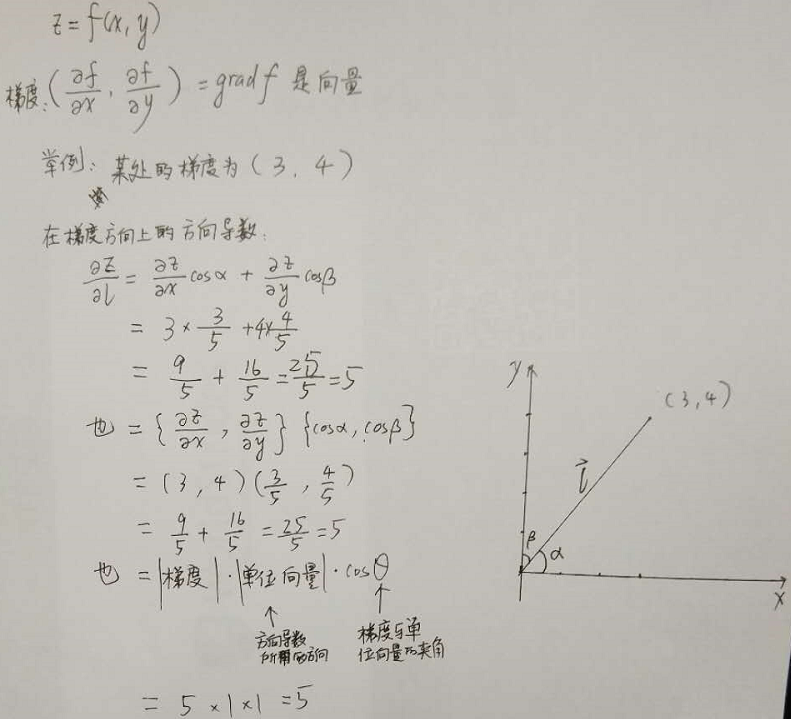 z = f(x, y)
梯度: (∂f/∂x, ∂f/∂y) = grad f 是向量
举例: 某处的梯度为 (3, 4)
在梯度方向上的方向导数:
∂z/∂l = ∂z/∂x cosα + ∂z/∂y cosβ
= 3 × 3/5 + 4 × 4/5
= 9/5 + 16/5 = 25/5 = 5
也 = {∂z/∂x, ∂z/∂y} {cosα, cosβ}
= (3, 4) (3/5, 4/5)
= 9/5 + 16/5 = 25/5 = 5
也 = |梯度| · |单位向量| · cosθ
↑ ↑
方向导数
所用的方向
梯度与单
位向量的夹角
= 5 × 1 × 1 = 5
y
(3, 4)
l
β
α
x